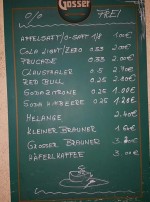 Gösser
o/o FREI
APFELSAFT/O-SAFT 1/8 1.00€
COLA LIGHT/ZERO 0.33 2.00€
FRUCADE 0.33 2.00€
CLAUSTHALER 0.5 2.70€
RED BULL 0.25 2.00€
SODAZITRONE 0.25 1.00€
SODA HIMBEERE 0.25 1.20€
MELANGE 2.40€
KLEINER BRAUNER 1.60€
GROSSER BRAUNER 3.20€
HÄFERLKAFFEE 3.00€